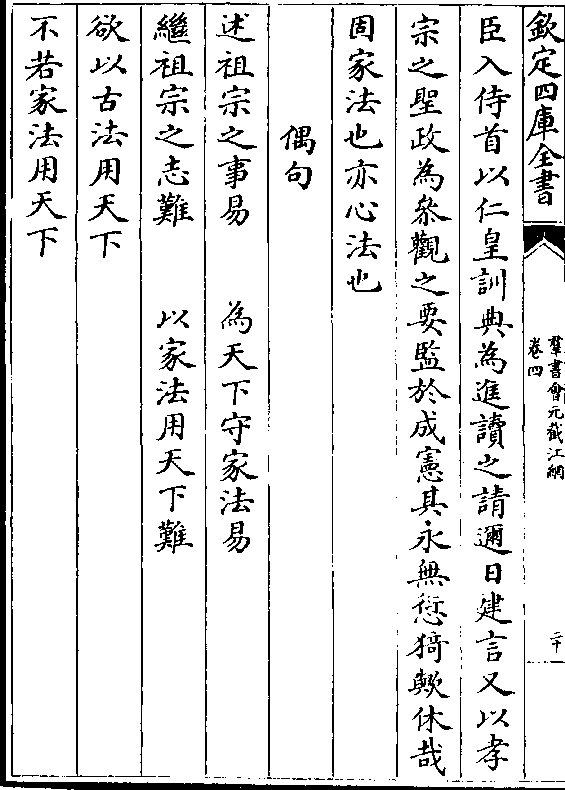 欽定四庫全書
羣書會元截江網
卷四
二十
臣入侍首以仁皇訓典為進讀之請邇日建言又以孝
宗之聖政為參觀之要監於成憲其永無愆猗歟休哉
固家法也亦心法也
偶句
述祖宗之事易　為天下守家法易
繼祖宗之志難　以家法用天下難
欲以古法用天下
不若家法用天下